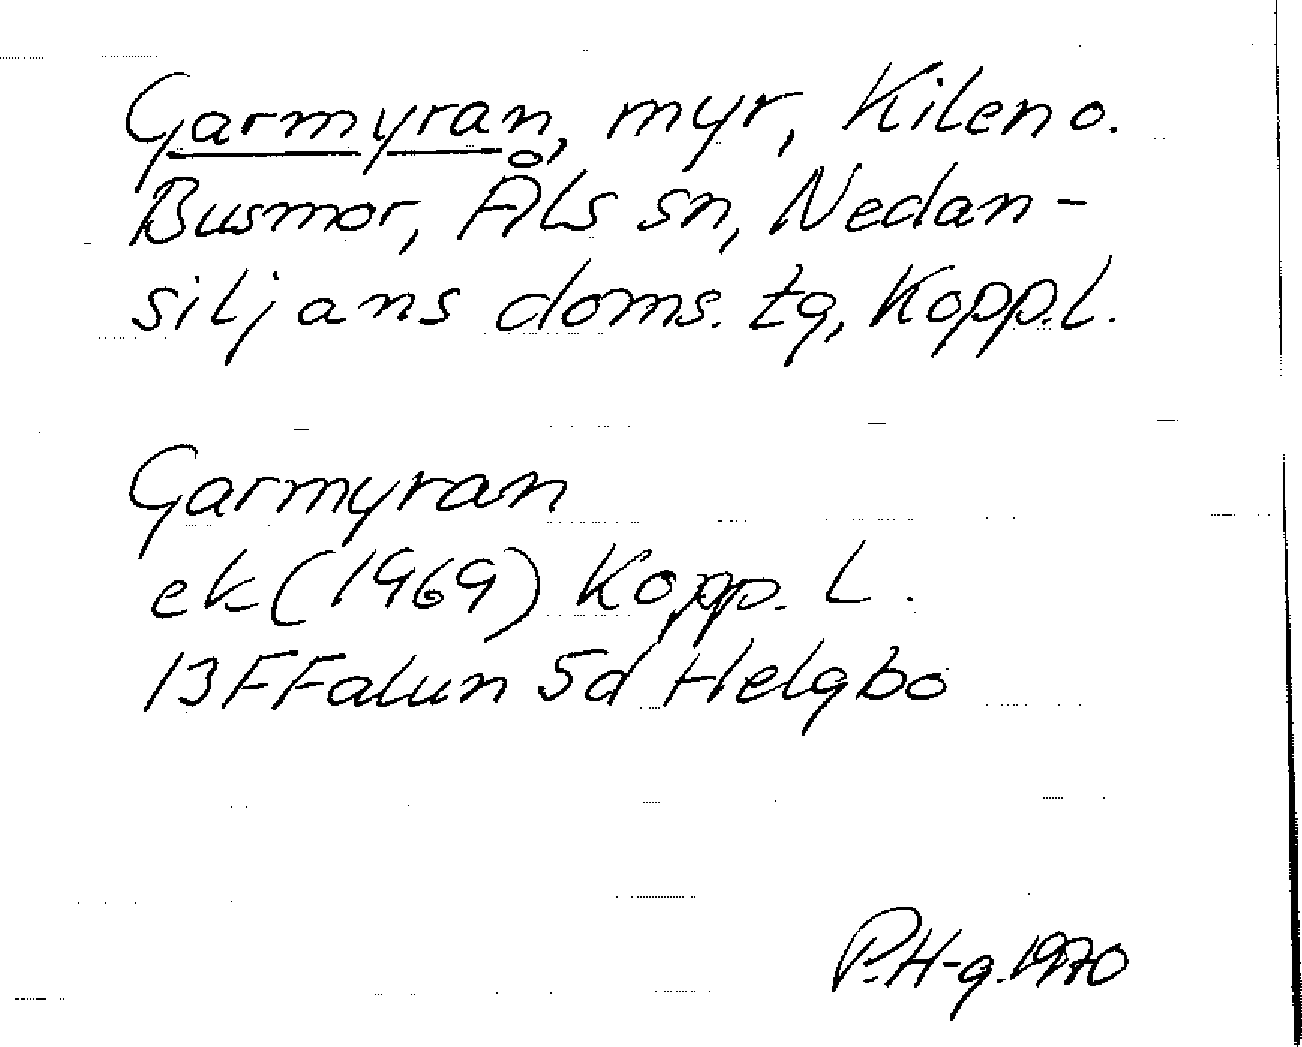 Garmyran, myr, Kilen o.
Busmor, Åls sn, Nedan-
siljans doms. tg, Kopp.l.
Garmyran
ek (1969) Kopp. L.
13F Falun 5d Helgbo
P.H-g. 1970